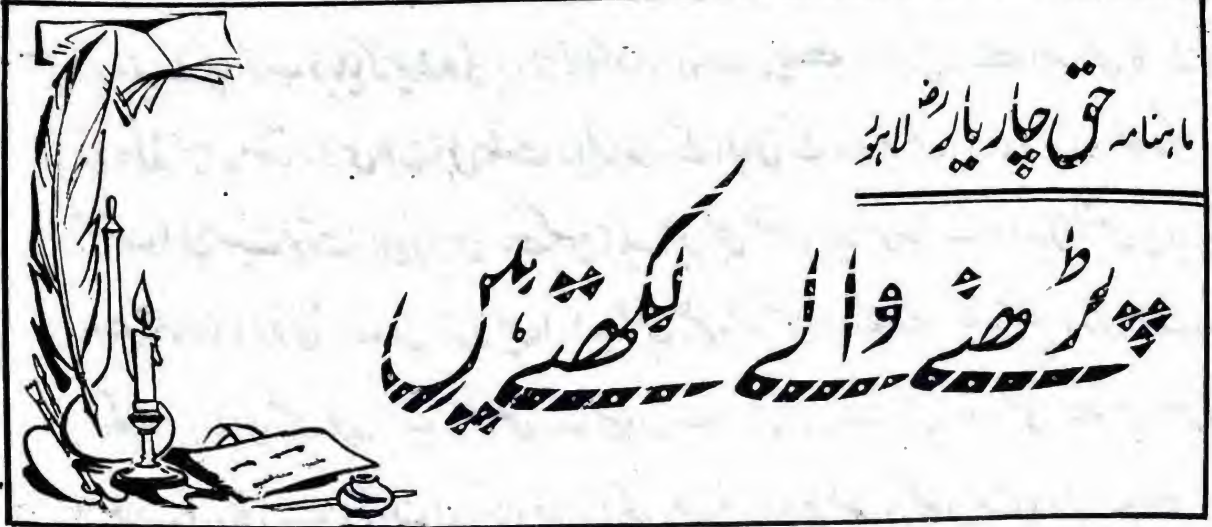 ماہنامہ حق چار یارؓ لاہور
پڑھنے والے لکھتے ہیں